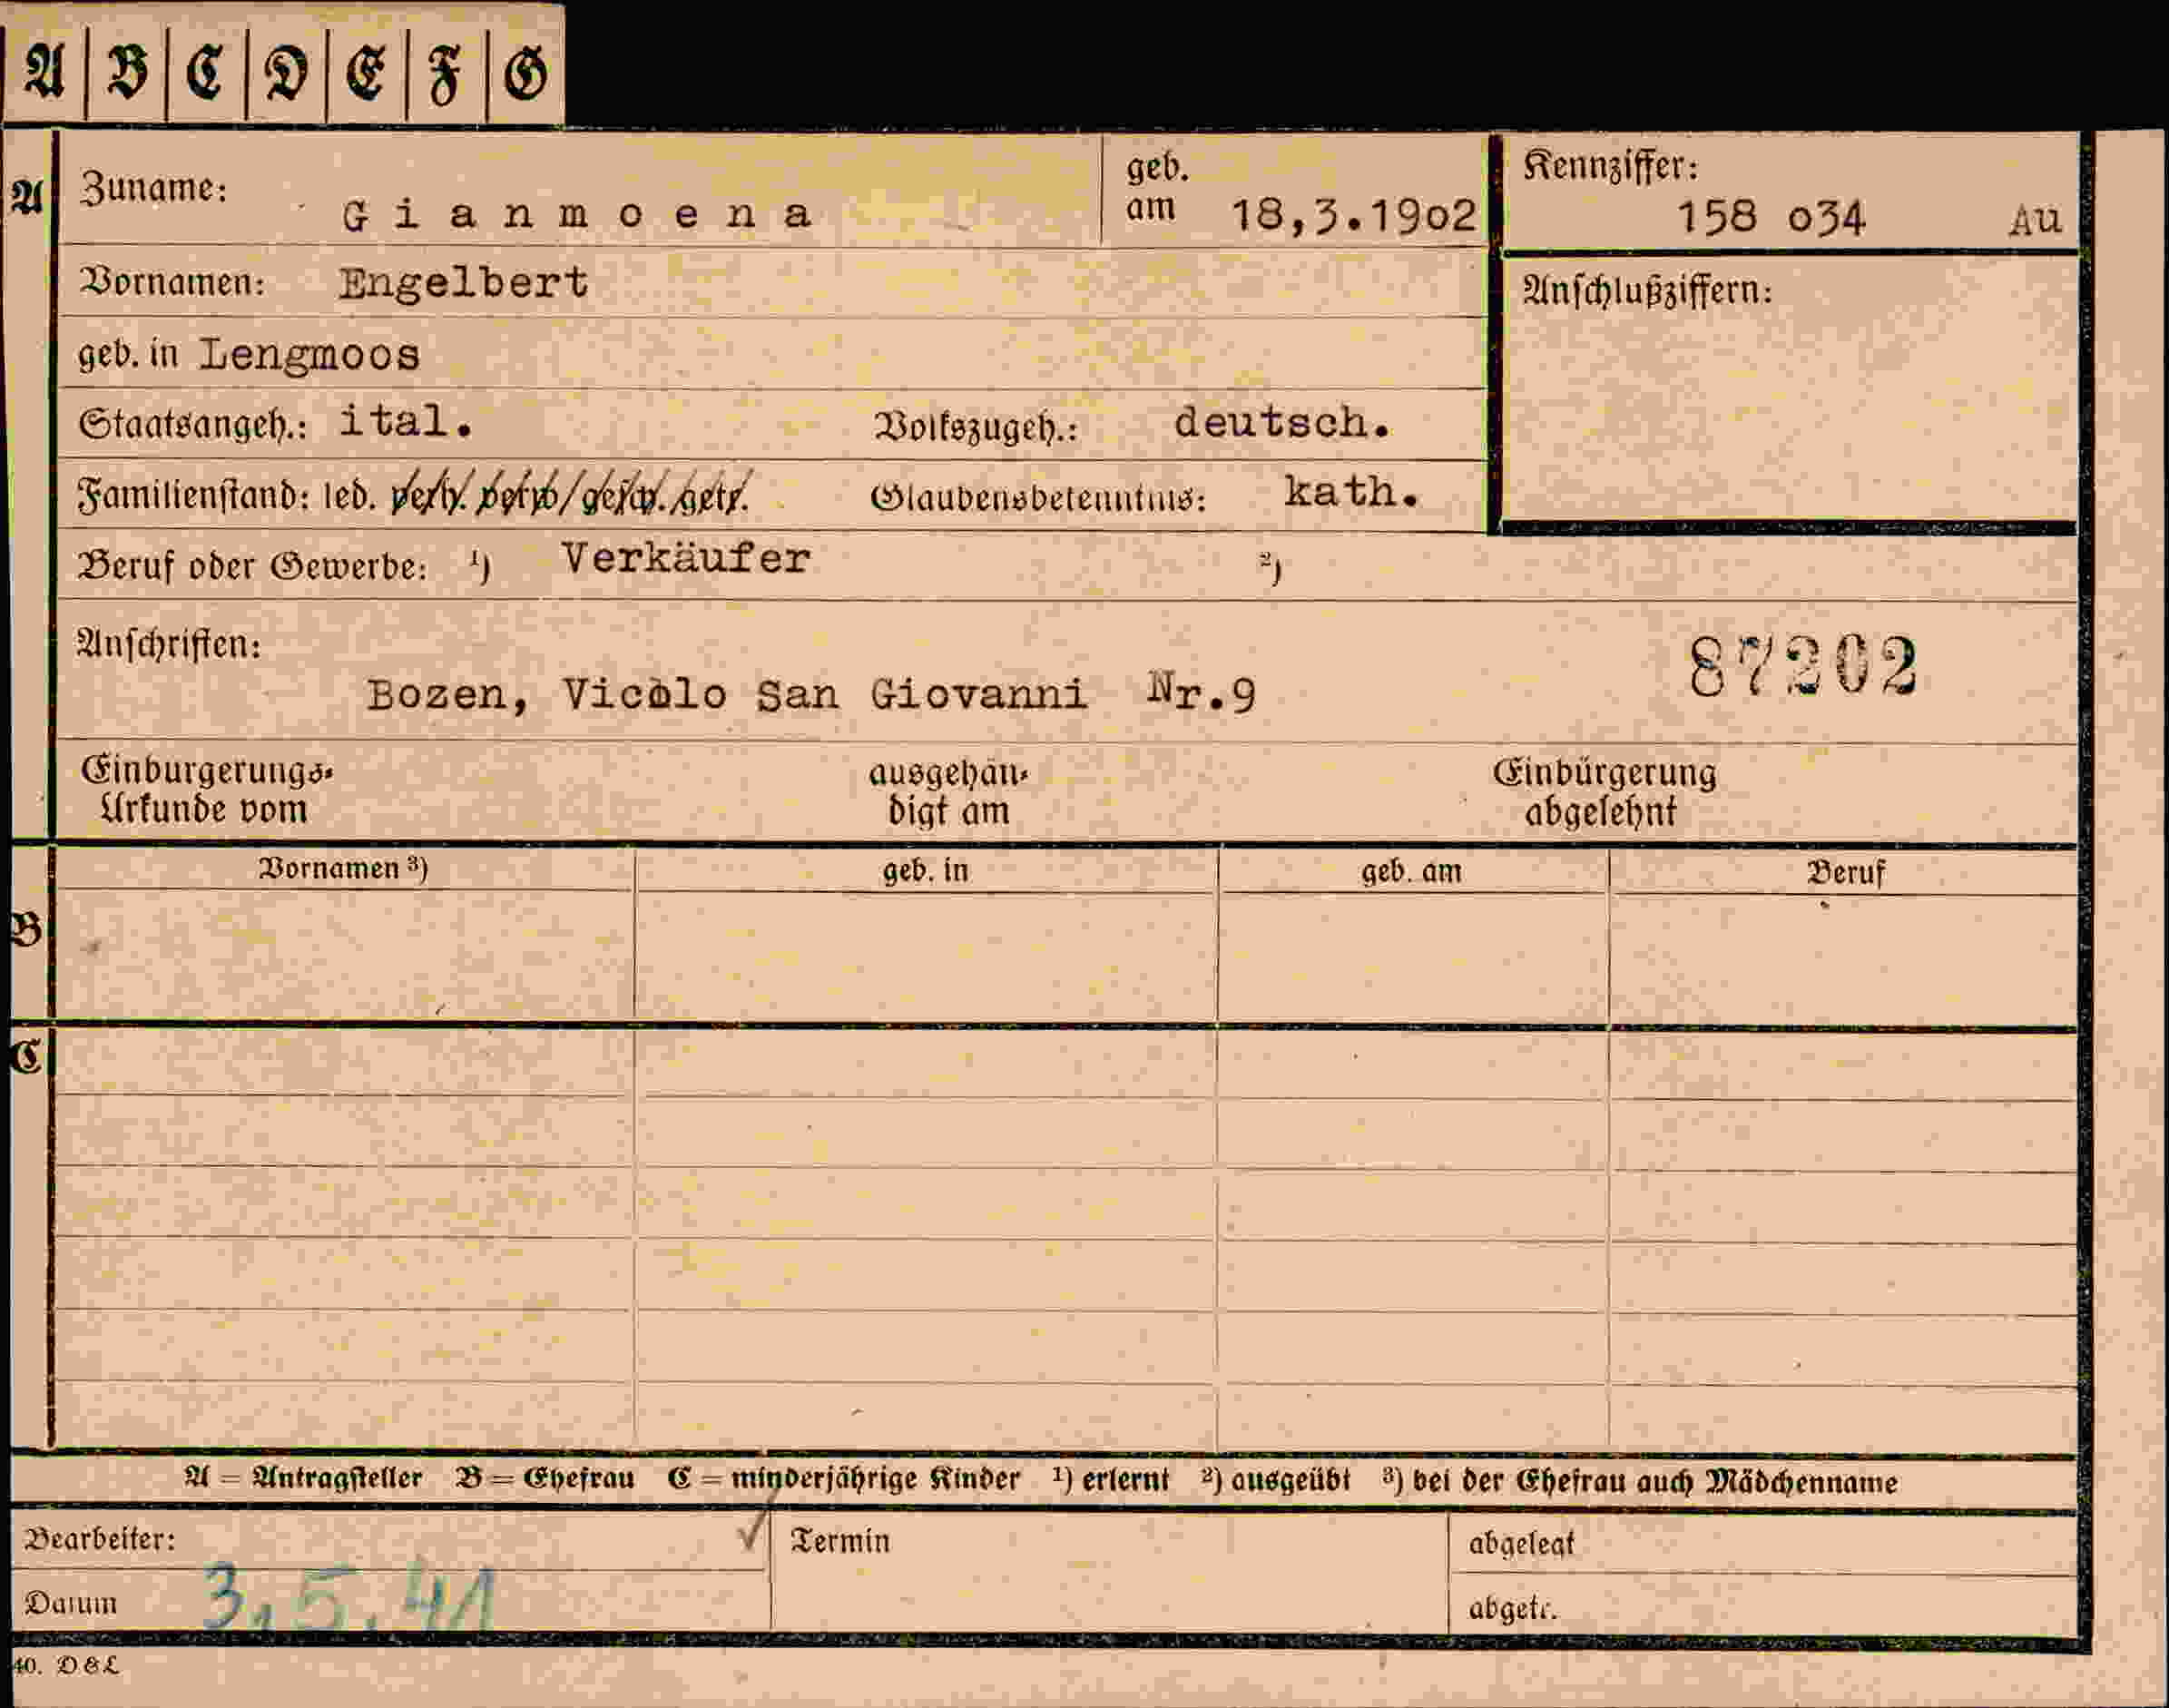 A B C D E F G
A Zuname: Gianmoena geb. am 18,3.19o2 Kennziffer: 158 o34 Au
Vornamen: Engelbert Anschlußziffern:
geb. in Lengmoos
Staatsangeh.: ital. Volkszugeh.: deutsch.
Familienstand: led. verh. verw. gesch. getr. Glaubensbekenntnis: kath.
Beruf oder Gewerbe: 1) Verkäufer 2)
Anschriften:
87202
Bozen, Vicolo San Giovanni Nr.9
Einbürgerungs- ausgehän- Einbürgerung
Urkunde vom digt am abgelehnt
Vornamen 3) geb. in geb. am Beruf
B
C
A = Antragsteller B = Ehefrau C = minderjährige Kinder 1) erlernt 2) ausgeübt 3) bei der Ehefrau auch Mädchenname
Bearbeiter: ✓ Termin abgelegt
Datum 3.5.41 abgetr.
40. D & L